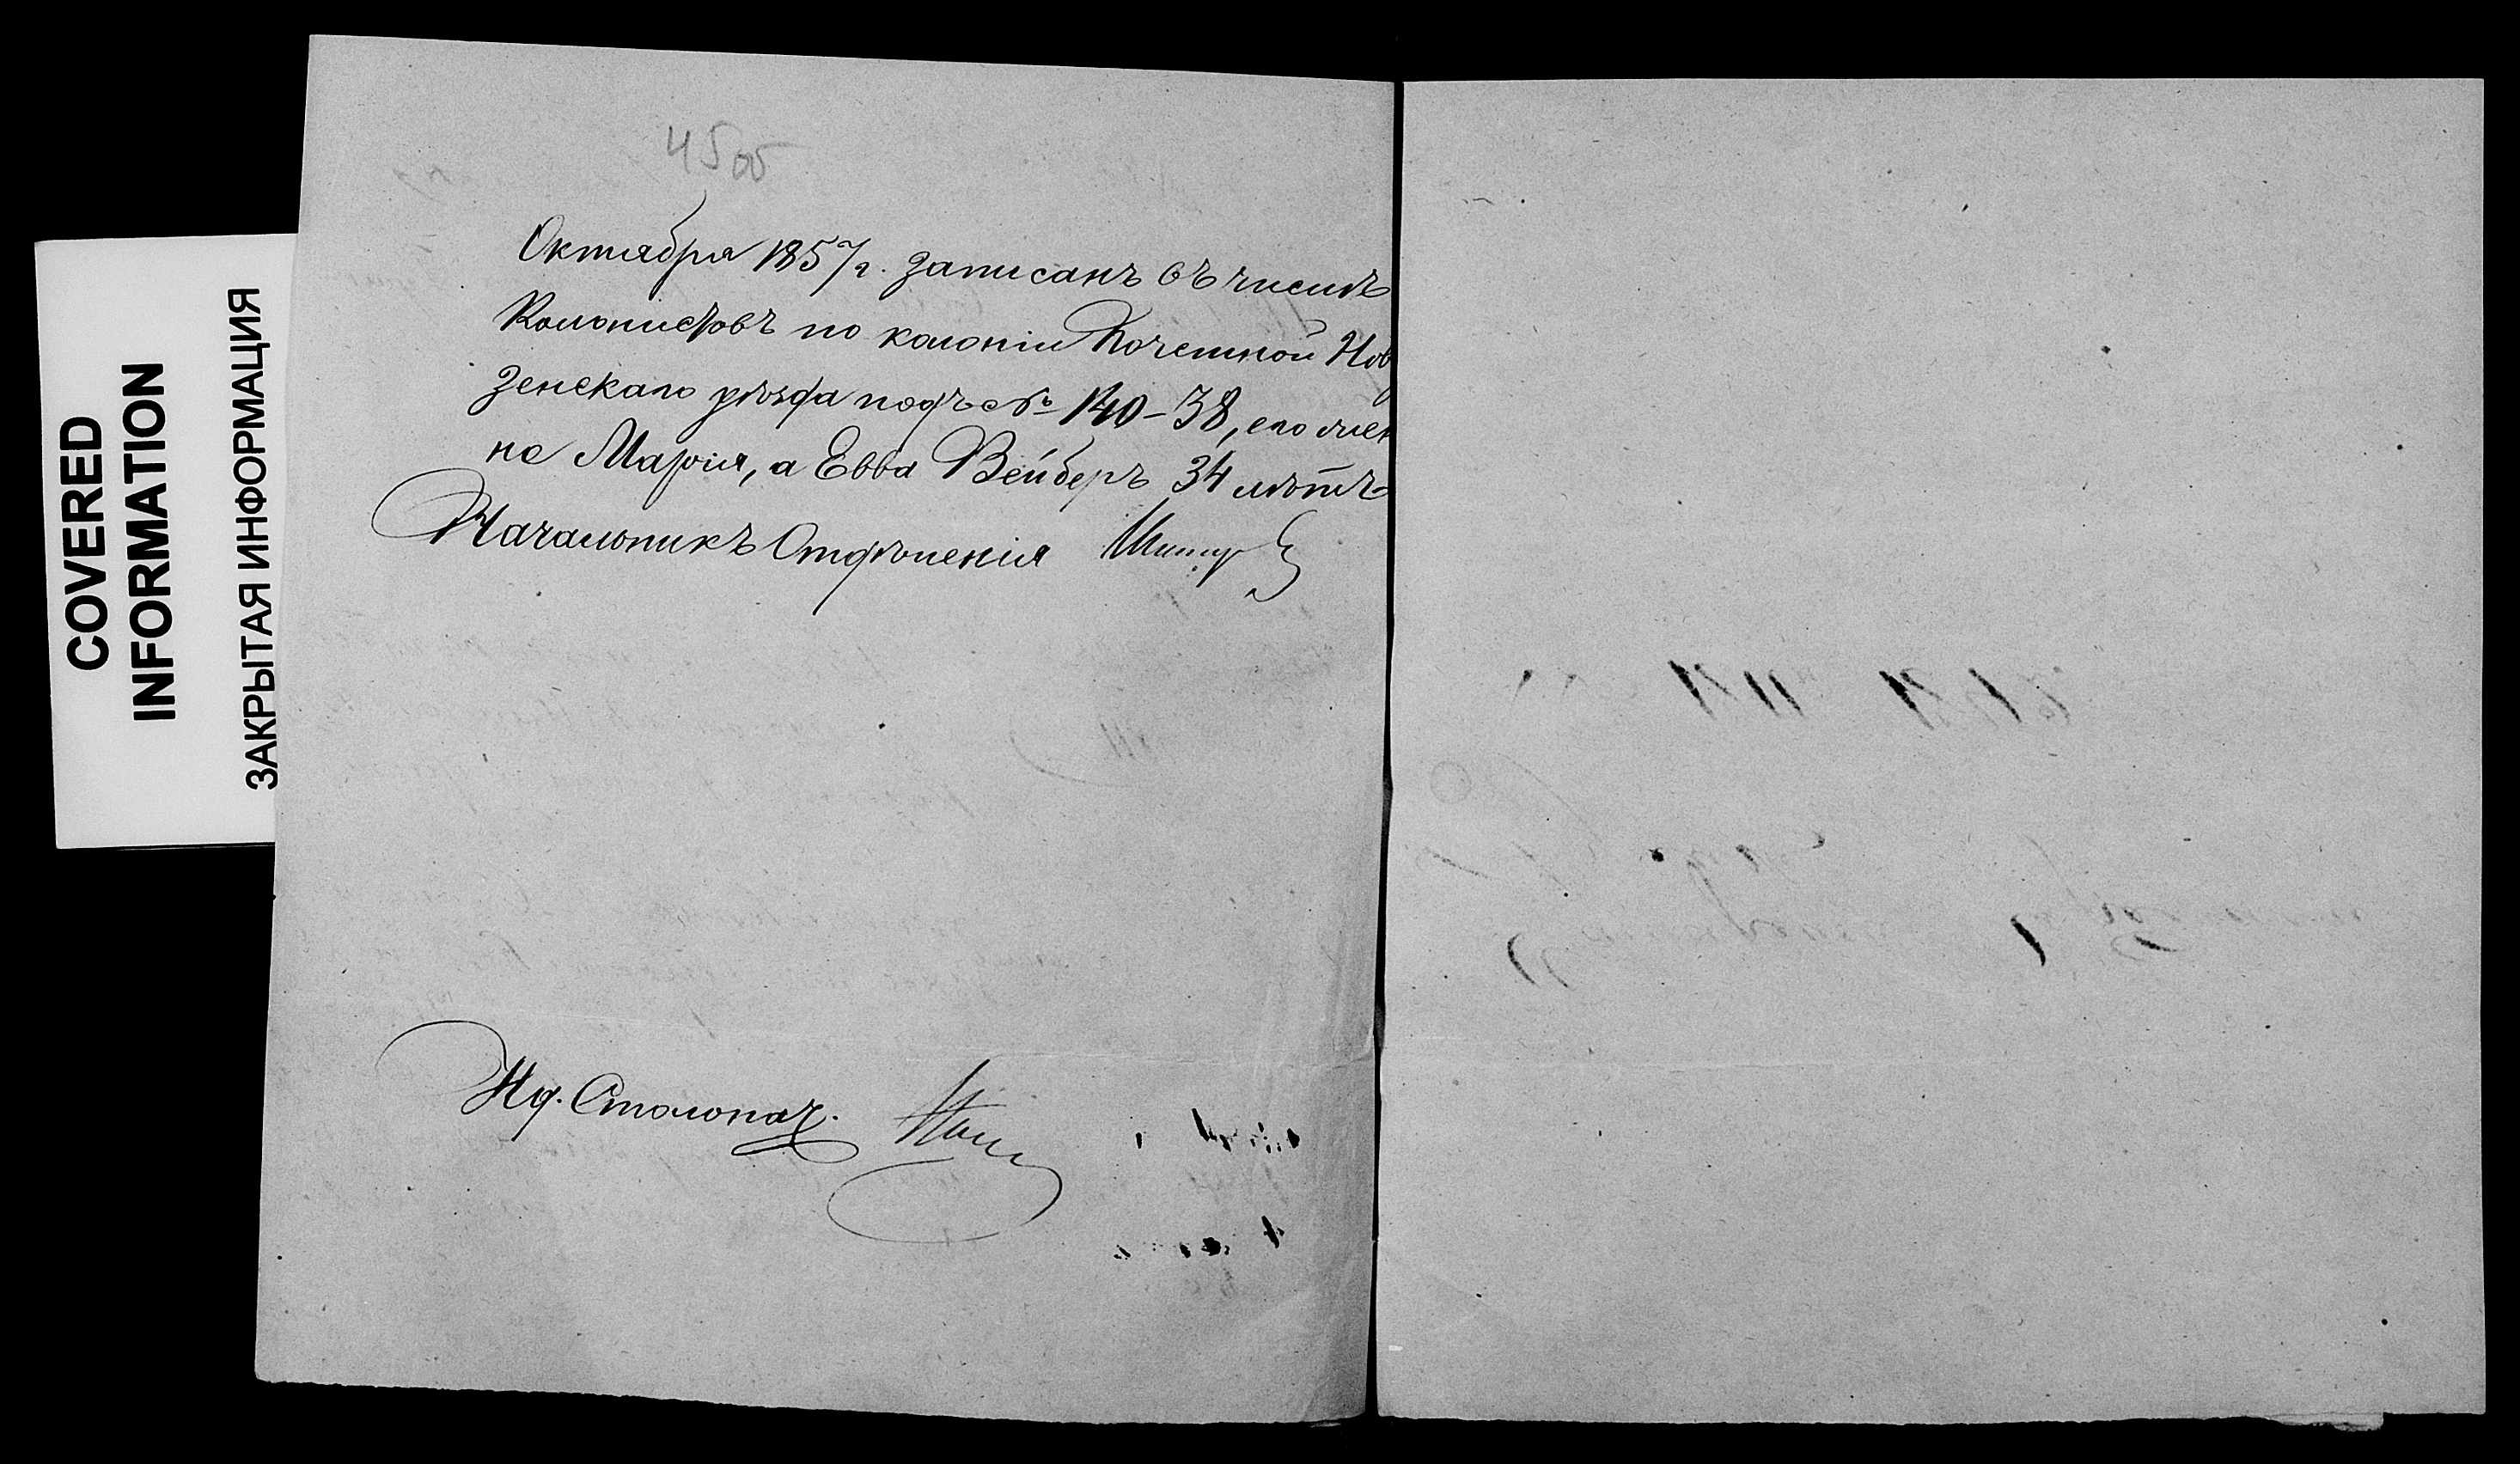 COVERED
INFORMATION
ЗАКРЫТАЯ ИНФОРМАЦИЯ
45 об
Октября 1857 г. записанъ въ числѣ
Колонистовъ по колоніи Почетной Нов
зенскаго уѣзда подъ № 140-38, его
на Марія, а Евва Вейберъ 34 лѣтъ
Начальникъ Отдѣленія
Ид. Столонач.